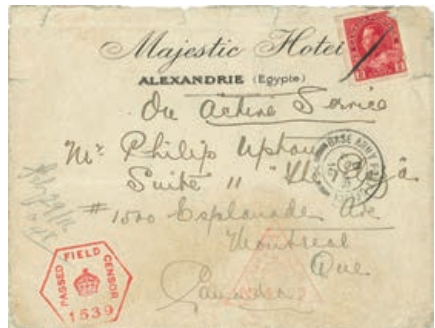 Majestic Hotel
ALEXANDRIE (Egypte)
On Active Service
Mr Philip
Suite "
# 1500 Esplanade Ave
Montreal
Que
Canada
BASE ARMY
PASSED FIELD CENSOR
1539